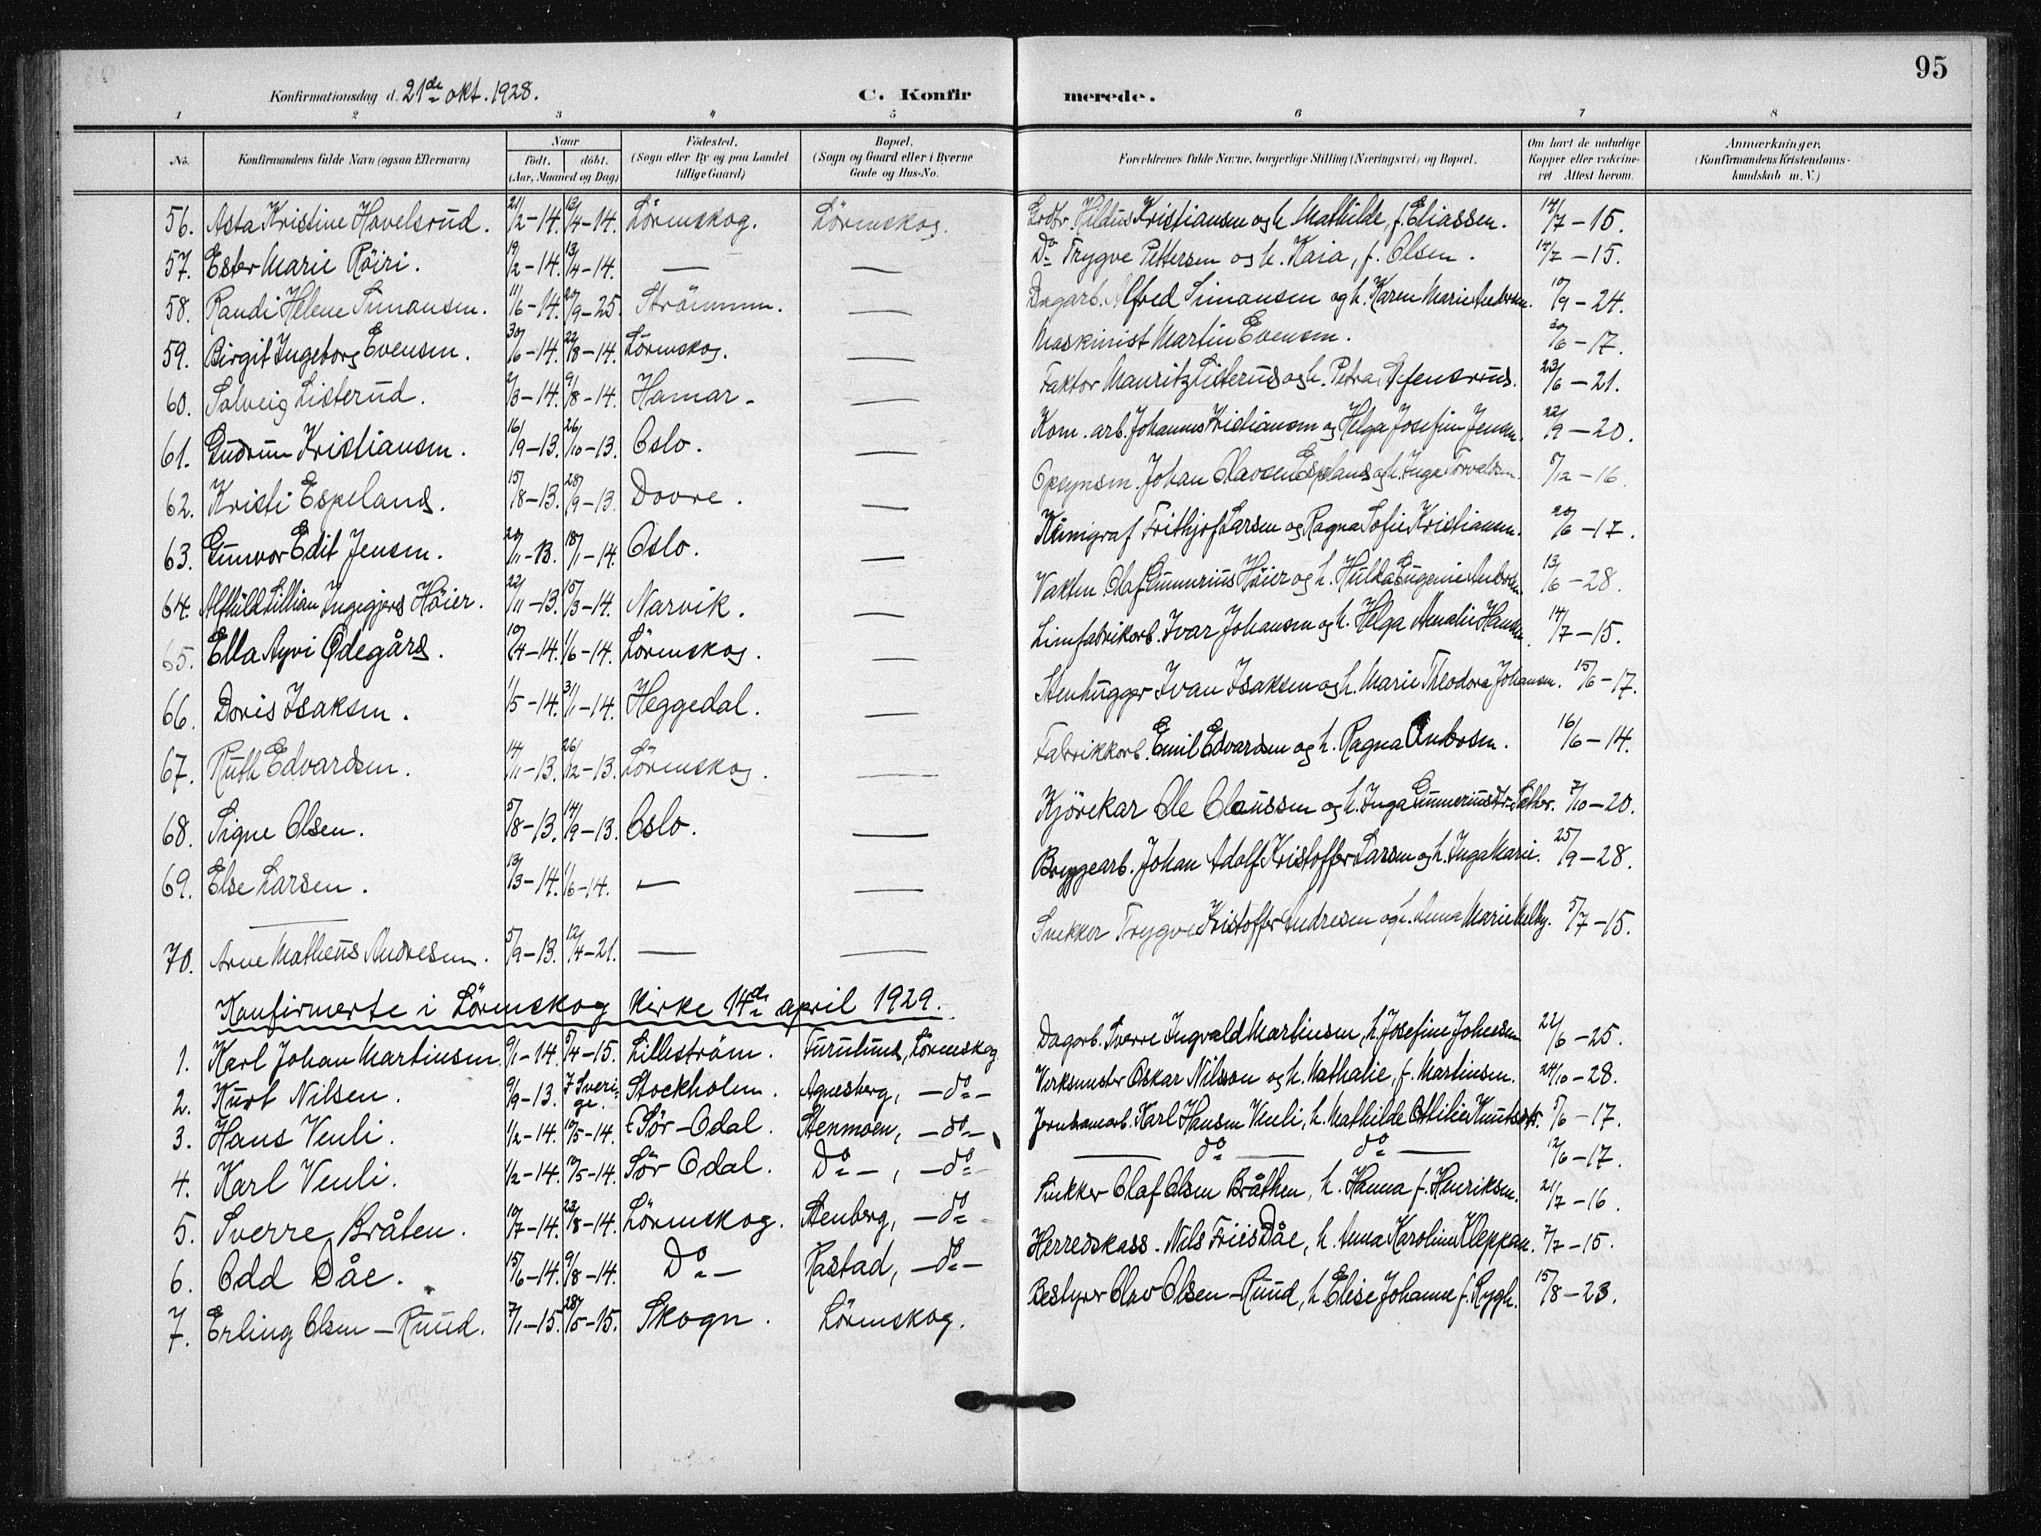 95
Konfirmationsdag d. 21de okt. 1928. C. Konfirmerede.
1 2 3 4 5 6 7 8
No. Konfirmandens fulde Navn (ogsaa Efternavn) Naar født. døbt. (Aar, Maaned og Dag) Fødested. (Sogn eller By og paa Landet tillige Gaard) Bopæl. (Sogn og Gaard eller i Byerne Gade og Hus-No. Forældrenes fulde Navne, borgerlige Stilling (Næringsvei) og Bopæl. Om havt de naturlige Kopper eller vaksineret Attest herom. Anmærkninger. (Konfirmandens Kristendomskundskab m. V.)
56. Asta Kristine Hovelsrud. 21/2-14. 13/4-14. Lörenskog. Lörenskog. Hildus Kristiansen og h. Mathilde, f. Eliassen. 14/7-15.
57. Ester Marie Röiri. 19/2-14. 13/4-14. — — Do Trygve Pettersen og h. Kaia, f. Olsen. 14/7-15.
58. Randi Helene Simansen. 11/6-14. 20/9-25. Strömmen. — Dagarb. Alfred Simansen og h. Karen Marie Andersen. 10/9-24.
59. Birgit Ingeborg Evensen. 30/6-14. 22/8-14. Lörenskog. — Maskinist Martin Evensen. 30/6-17.
60. Solveig Listerud. 2/3-14. 9/8-14. Hamar. — Faktor Mauritz Listerud og h. Petra 23/6-21.
61. Gudrun Kristiansen. 16/9-13. 26/10-13. Oslo. — Kom. arb. Johannes Kristiansen og Helga Josefine Jensen. 22/9-20.
62. Kristi Espeland. 15/8-13. 28/9-13. Dovre. — Opsynsm. Johan Olavsen Espeland og h. Inga Torvaldsen. 8/12-16.
63. Gunvor Edit Jensen. 20/11-13. 18/1-14. Oslo. — Kemigraf Frithjof Larsen og Ragna Sofie Kristiansen. 20/6-17.
64. Alfhild Lillian Ingegjerd Höier. 22/11-13. 15/3-14. Narvik. — Vaktm. Olaf Gunnerius Höier og h. Hulda Eugenie 13/6-28.
65. Ella Ayvi Ödegård. 10/4-14. 1/6-14. Lörenskog. — Limfabrikarb. Ivar Johansen og h. Helga Amalie Hansen. 14/7-15.
66. Doris Isaksen. 1/5-14. 31/11-14. Heggedal. — Stenhugger Ivan Isaksen og h. Marie Theodora Johansen. 15/6-17.
67. Ruth Edvardsen. 14/11-13. 26/12-13. Lörenskog. — Fabrikkarb. Emil Edvardsen og h. Ragna 16/6-14.
68. Signe Olsen. 5/8-13. 14/9-13. Oslo. — Kjörekar Ole Olaussen og h. Inga 7/10-20.
69. Else Larsen. 13/3-14. 1/6-14. — — Bryggearb. Johan Adolf Kristoffer Larsen og h. Inga Marie. 25/9-28.
70. Arne Matheus Andresen. 5/9-13. 12/4-21. — — Snekker Trygve Kristoffer Andresen og h. Anna Marie Melby. 5/7-15.
Konfirmerte i Lörenskog kirke 14de april 1929.
1. Karl Johan Martinsen. 9/1-14. 5/4-15. Lilleström. Furulund, Lörenskog Dagarb. Sverre Ingvald Martinsen, h. Josefine 22/6-25.
2. Kurt Nilsen. 9/9-13. I Sverige. Stockholm. Agnesberg, -do- Verksmester Oskar Nilsson og h. Mathalie, f. Martinsen. 24/10-28.
3. Hans Venli. 1/2-14. 10/5-14. Sör-Odal. Stenmoen, -do- Jernbanearb. Karl Hansen Venli, h. Mathilde Othilie 5/6-17.
4. Karl Venli. 1/2-14. 10/5-14. Sör Odal. Do-, -do- — do — do — 12/6-17.
5. Sverre Bråten. 10/7-14. 23/8-14. Lörenskog. Stenberg, -do- Snekker Olaf Olsen Bråthen, h. Hanna f. Henriksen. 21/7-16.
6. Odd Dåe. 15/6-14. 9/8-14. Do- Rastad, -do- Herredskass. Nils Friis Dåe, h. Anna Karoline Kleppan. 7/7-15.
7. Erling Olsen-Ruud. 7/1-15. 28/5-15. Skogn. Lörenskog. Bestyrer Olav Olsen-Ruud, h. Elise Johanne f. Rygh. 15/8-23.